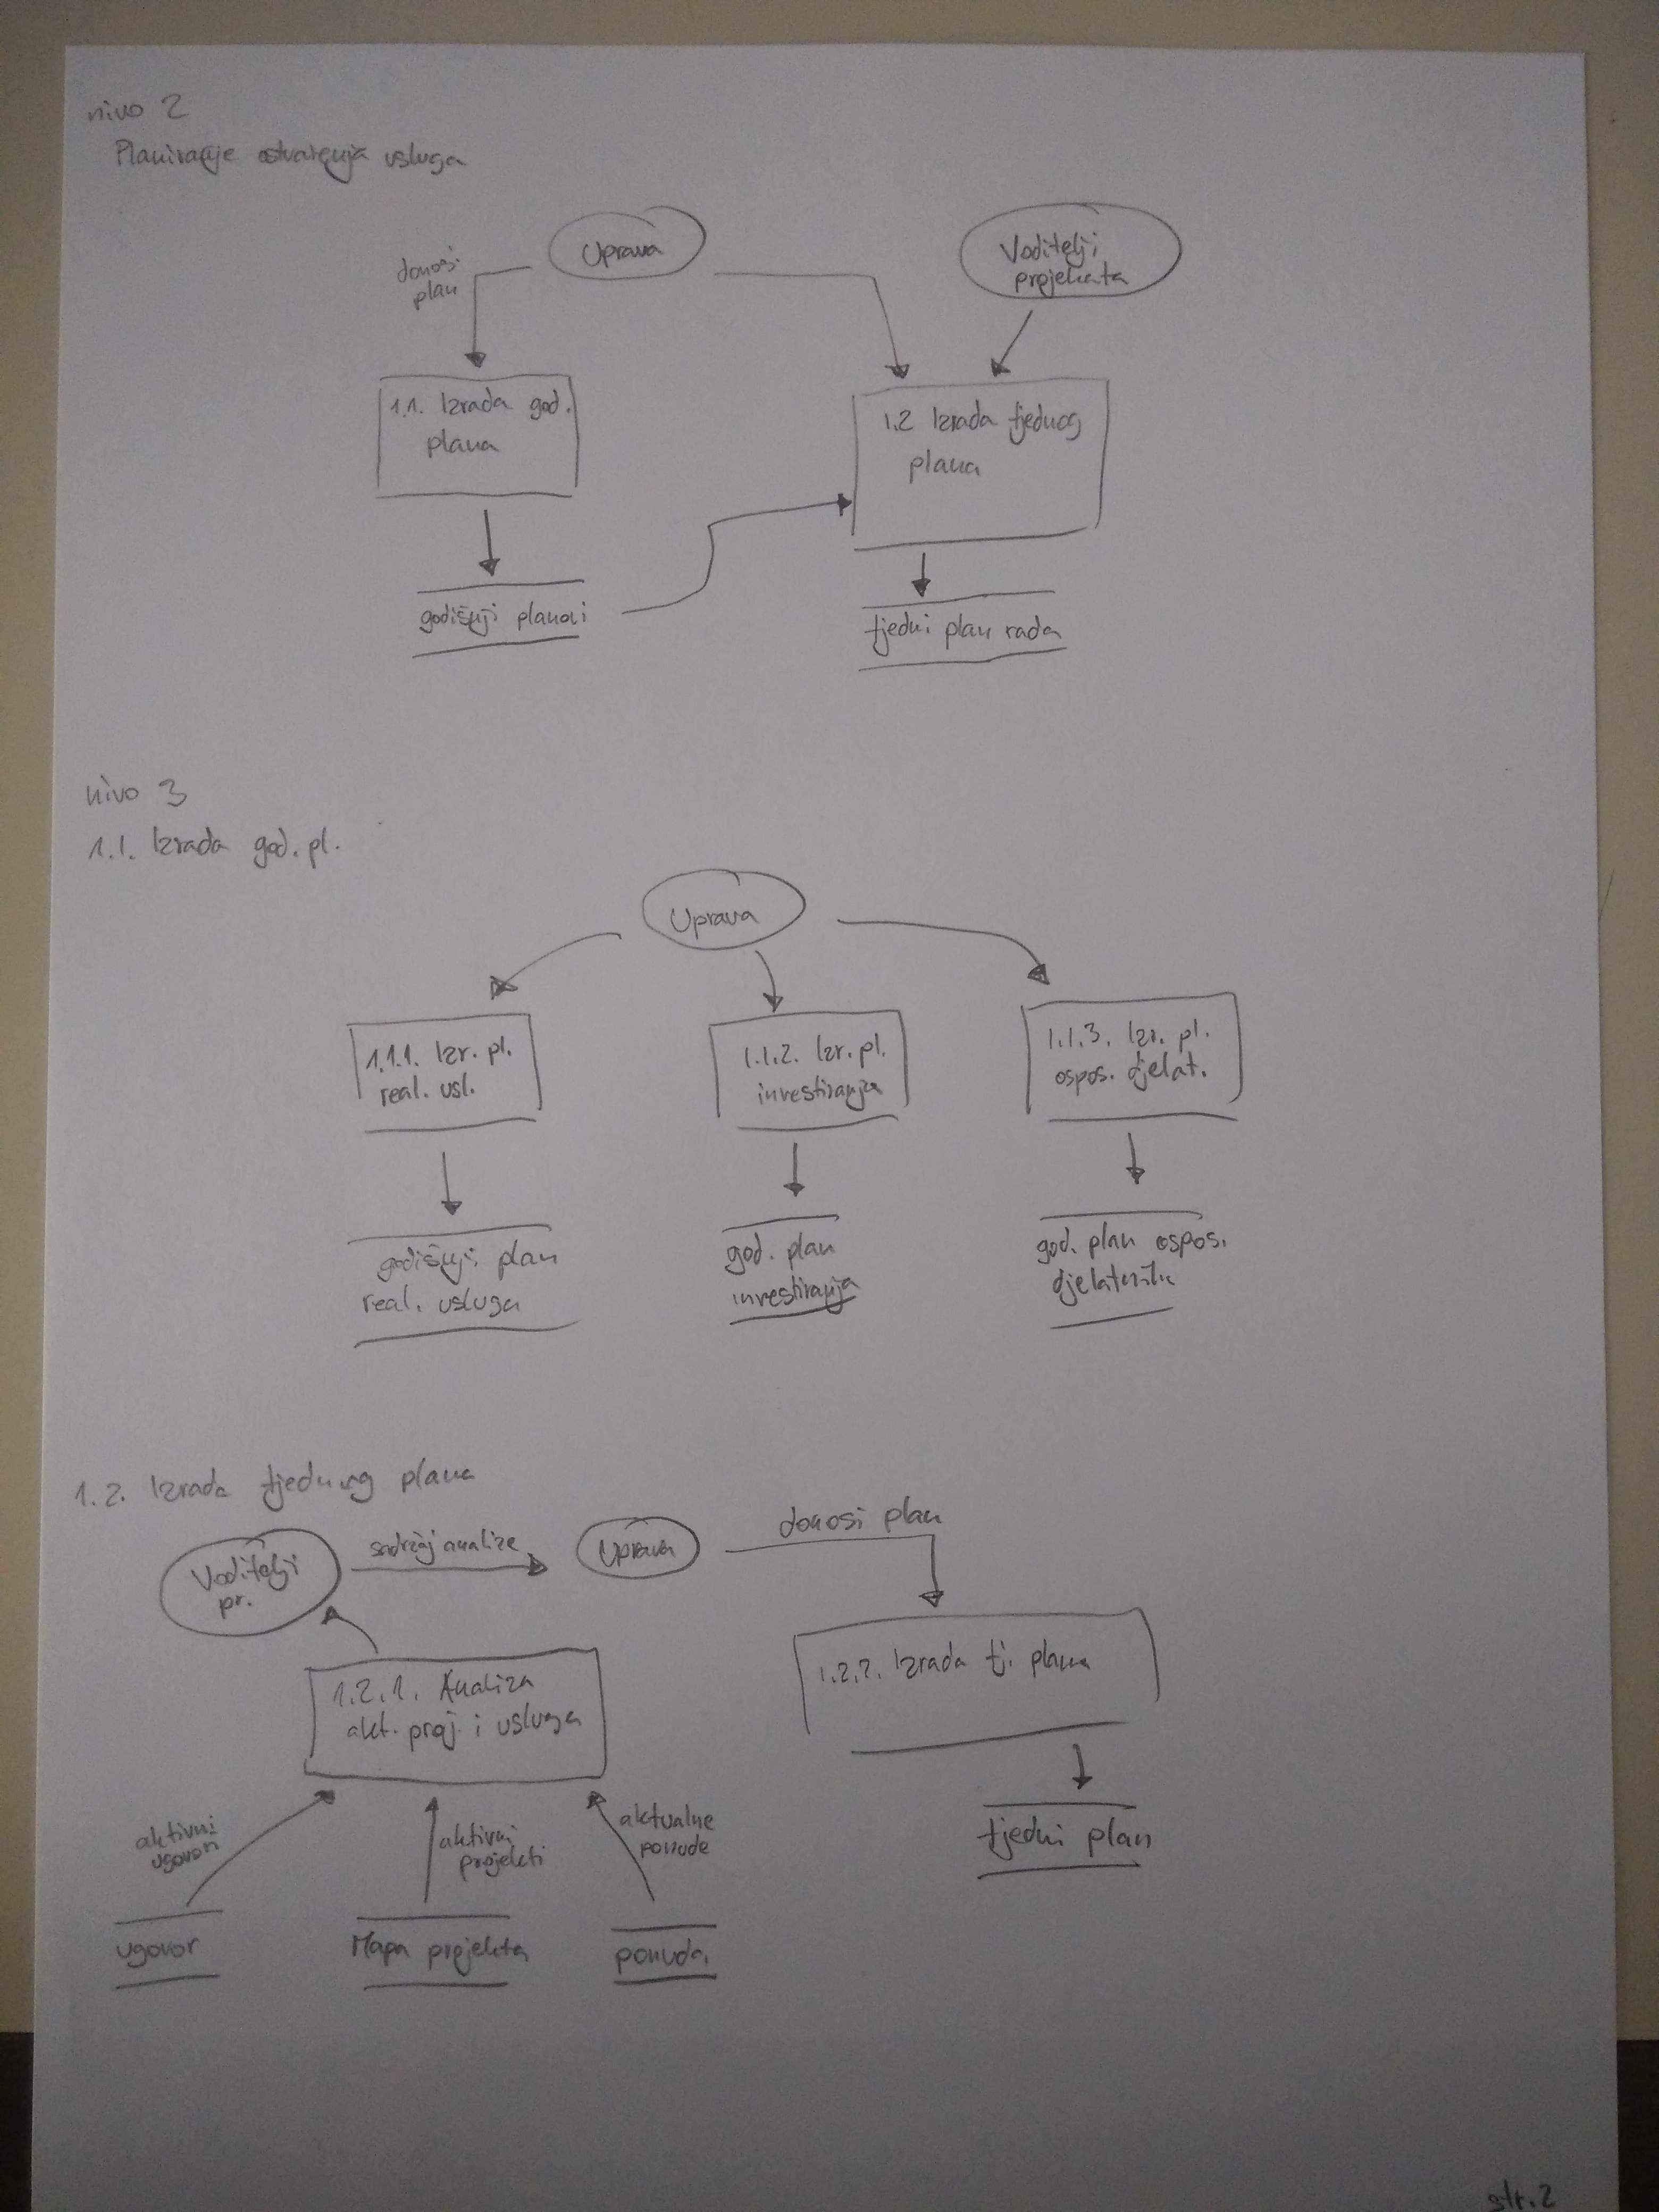 nivo 2
Planiranje ostvarenja usluga
Uprava
Voditelji
projekata
donosi
plan
1.1. Izrada god.
plana
1.2 Izrada tjednog
plana
godišnji planovi
tjedni plan rada
nivo 3
1.1. Izrada god. pl.
Uprava
1.1.1. Izr. pl.
real. usl.
1.1.2. Izr. pl.
investiranja
1.1.3. Izr. pl.
ospos. djelat.
godišnji plan
real. usluga
god. plan
investiranja
god. plan ospos.
djelatnik
1.2. Izrada tjednog plana
Voditelji
pr.
sadržaj analize
Uprava
donosi plan
1.2.1. Analiza
akt. proj. i usluga
1.2.2. Izrada tj. plana
aktivni
ugovori
aktivni
projekti
aktualne
ponude
tjedni plan
ugovor
Mapa projekta
ponuda
str. 2